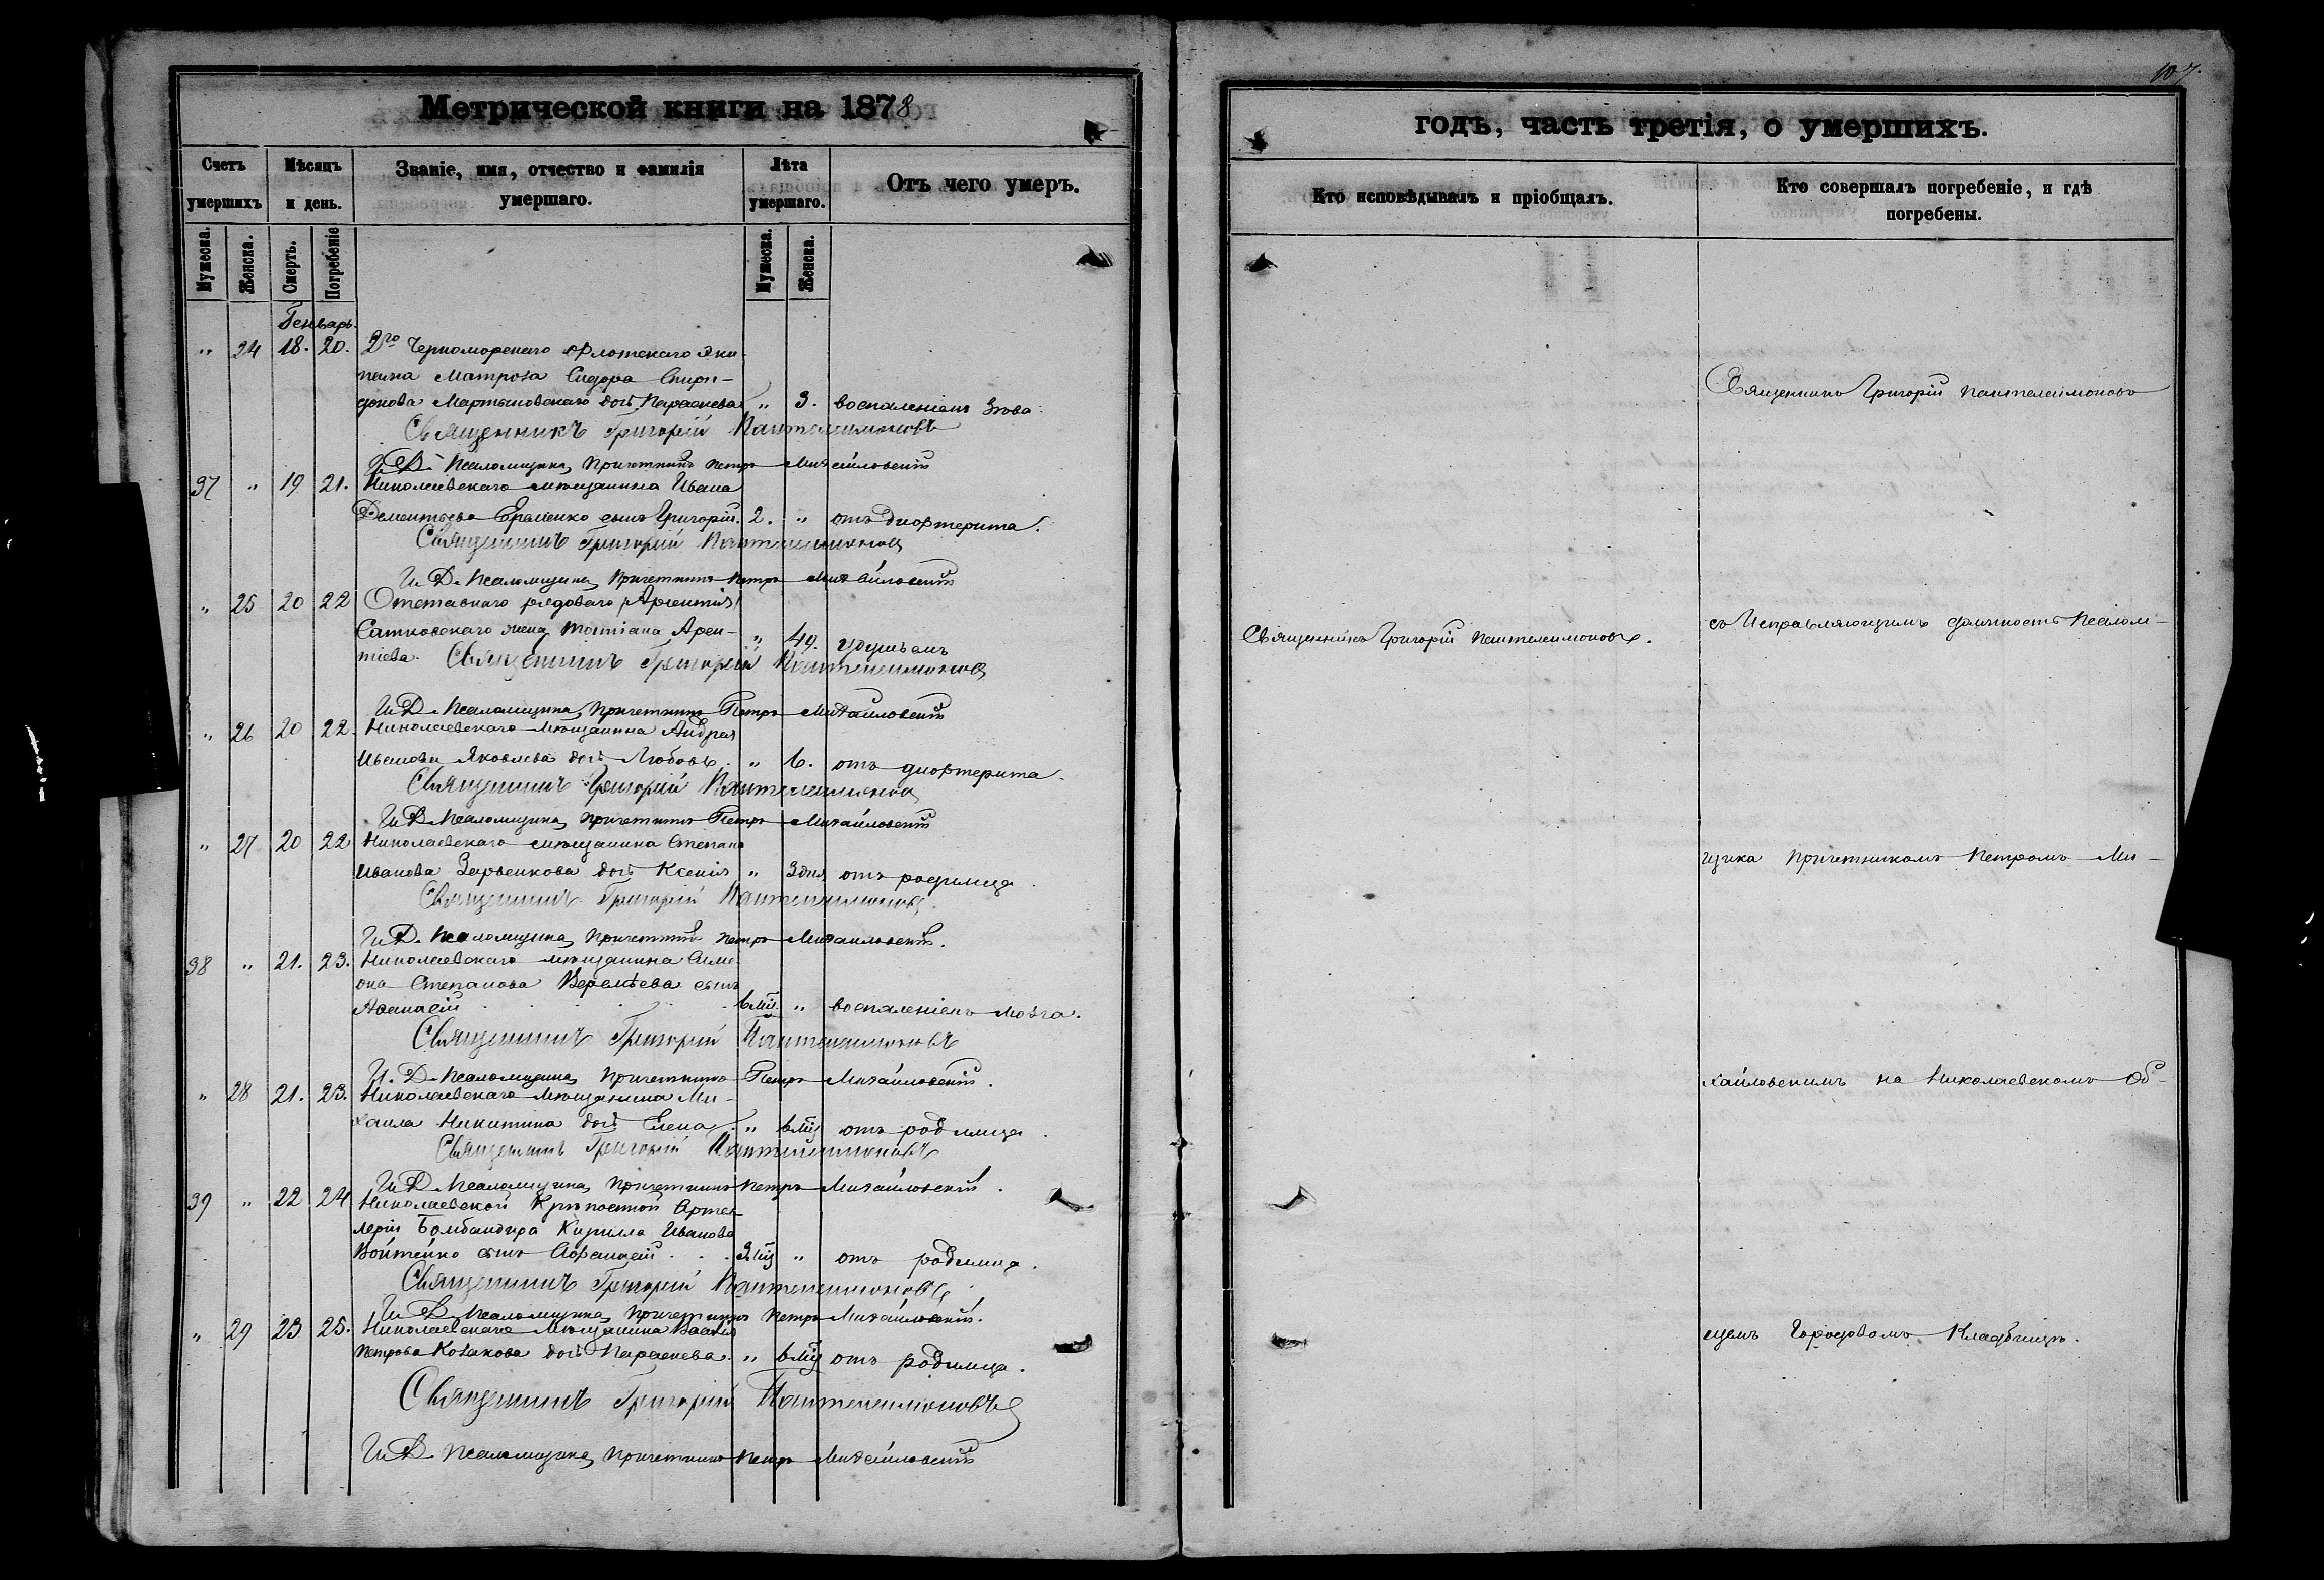 Метрической книги на 1878
Счетъ умершихъ
Мѣсяцъ и день.
Званіе, имя, отчество и фамилія умершаго.
Лѣта умершаго.
Отъ чего умеръ.
Мужеска. Женска. Смерть. Погребеніе Мужеска. Женска.
Генварь.
" 24 18. 20. 2го Черноморскаго Флотскаго Эки-
пажа Матроса Сидора Спири-
донова Мартыновскаго дочь Параскева " 3. воспаленіемъ Зѣва
Священникъ Григорій Пантелеимоновъ
И. Д. Псаломщика, Причетникъ Петръ Михайловскій
37 " 19 21. Николаевскаго мѣщанина Ивана
Дементьева Еременко сынъ Григорій. 2. " отъ дифтерита.
Священникъ Григорій Пантелеимоновъ
И. Д. Псаломщика, Причетникъ Петръ Михайловскій
" 25 20 22 Отставнаго рядоваго
Сатковскаго жена Татіана Арен-
тіева. " 49.
Священникъ Григорій Пантелеимоновъ
И. Д. Псаломщика, Причетникъ Петръ Михайловскій
" 26 20 22. Николаевскаго мѣщанина Андрея
Иванова Яковлева дочь Любовь. " 6. отъ дифтерита.
Священникъ Григорій Пантелеимоновъ
И. Д. Псаломщика, Причетникъ Петръ Михайловскій
" 27 20 22 Николаевскаго мѣщанина Степана
Иванова дочь Ксенія " 3 дня отъ родимца.
Священникъ Григорій Пантелеимоновъ
И. Д. Псаломщика, Причетникъ Петръ Михайловскій.
38 " 21. 23. Николаевскаго мѣщанина Симе
она Степанова Веремѣева сынъ
Афанасій 6 мц. " воспаленіемъ мозга.
Священникъ Григорій Пантелеимоновъ
И. Д. Псаломщика, Причетникъ Петръ Михайловскій.
" 28 21. 23. Николаевскаго мѣщанина Ми-
хаила Никитина дочь Елена " 6 мц отъ родимца.
Священникъ Григорій Пантелеимоновъ
И. Д. Псаломщика, Причетникъ Петръ Михайловскій.
39 " 22 24 Николаевской Крѣпостной Артил
леріи Бомбандира Кирилла Иванова
Войтенко сынъ Афанасій " отъ родимца.
Священникъ Григорій Пантелеимоновъ
И. Д. Псаломщика, Причетникъ Петръ Михайловскій.
" 29 23 25. Николаевскаго мѣщанина Василія
Петрова Козакова дочь Параскева. " 6 мц отъ родимца.
Священникъ Григорій Пантелеимоновъ
И. Д. Псаломщика, Причетникъ Петръ Михайловскій
107.
годъ, часть третія, о умершихъ.
Кто исповѣдывалъ и пріобщалъ.
Кто совершалъ погребеніе, и гдѣ погребены.
Священникъ Григорій Пантелеимоновъ.
Священникъ Григорій Пантелеимоновъ
съ Исправляющимъ должность Псалом-
щика Причетникомъ Петромъ Ми-
хайловскимъ на Николаевскомъ Об-
щемъ Городовомъ Кладбищѣ.